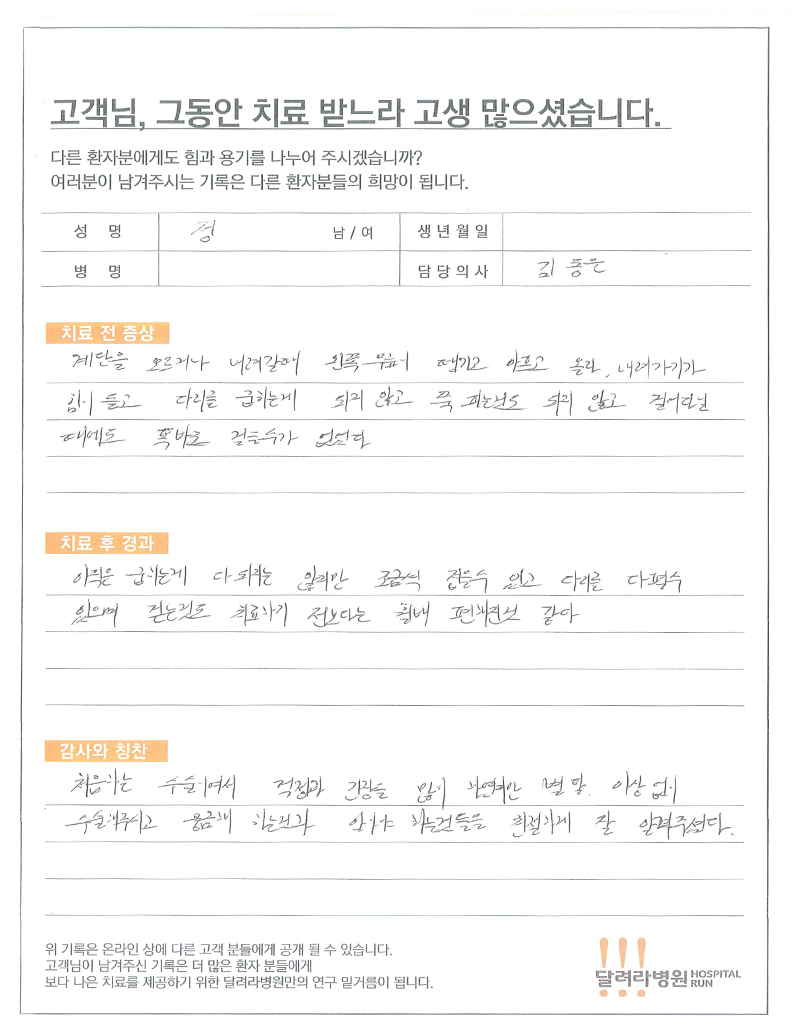 고객님, 그동안 치료 받느라 고생 많으셨습니다.
다른 환자분에게도 힘과 용기를 나누어 주시겠습니까?
여러분이 남겨주시는 기록은 다른 환자분들의 희망이 됩니다.
성 명 정 남 / 여 생년월일
병 명 담당의사 김동은
치료 전 증상
계단을 오르거나 내려갈때 왼쪽 무릎이 땡기고 아프고 올라, 내려가기가
힘이 들고 다리를 굽히는게 되지 않고 쭉 펴는것도 되지 않고 걸어다닐
때에도 똑바로 걸을수가 없었다
치료 후 경과
아직은 굽히는게 다 되지는 않지만 조금씩 접을수 있고 다리를 다 펼수
있으며 걷는것도 치료하기 전보다는 훨씬 편해진것 같다
감사와 칭찬
처음하는 수술이여서 걱정과 긴장을 많이 하였지만 별 탈 이상 없이
수술해주시고 궁금해 하는것과 알아야 하는것들을 친절하게 잘 알려주셨다.
위 기록은 온라인 상에 다른 고객 분들에게 공개 될 수 있습니다.
고객님이 남겨주신 기록은 더 많은 환자 분들에게
보다 나은 치료를 제공하기 위한 달려라병원만의 연구 밑거름이 됩니다.
!!!
달려라병원 HOSPITAL RUN